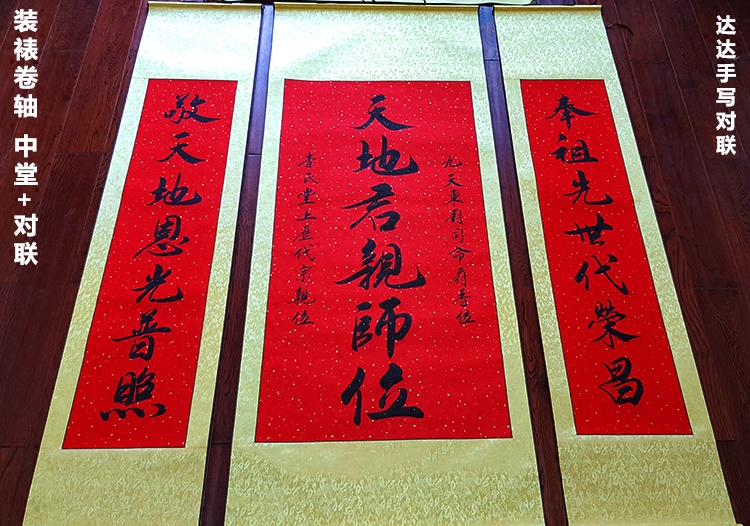 装裱卷轴 中堂+对联
达达手写对联
奉祖先世代榮昌
九天東廚司命府君位
天地君親師位
李氏堂上歷代宗親位
敬天地恩光普照